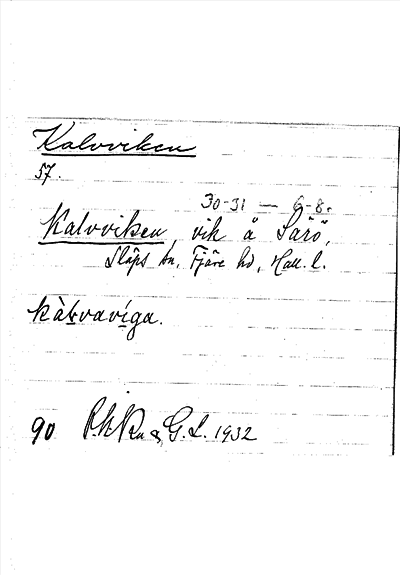 Kalvviken
57.
30-31 — 6-8.
Kalvviken, vik å Särö,
Släps sn, Fjäre hd, Hall. l.
kàɫvavíga.
90 P.N.Pn & G.L. 1932